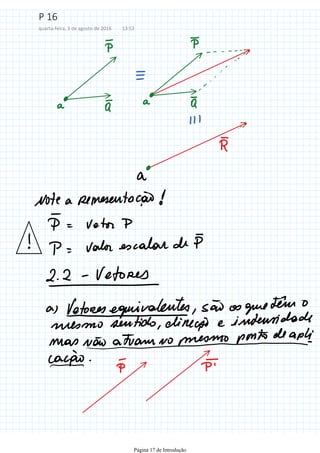 P 16
quarta-feira, 3 de agosto de 2016 13:53
P̅ P̅
≡
a Q̅ a Q̅
|||
R̅
a
Note a Representação!
P̅ = Vetor P
! P = Valor escalar de P̅
2.2 - Vetores
a) Vetores equivalentes, são os que têm o
mesmo sentido, direção e intensidade
mas não atuam no mesmo ponto de apli
cação.
P̅ P̅'
Página 17 de Introdução